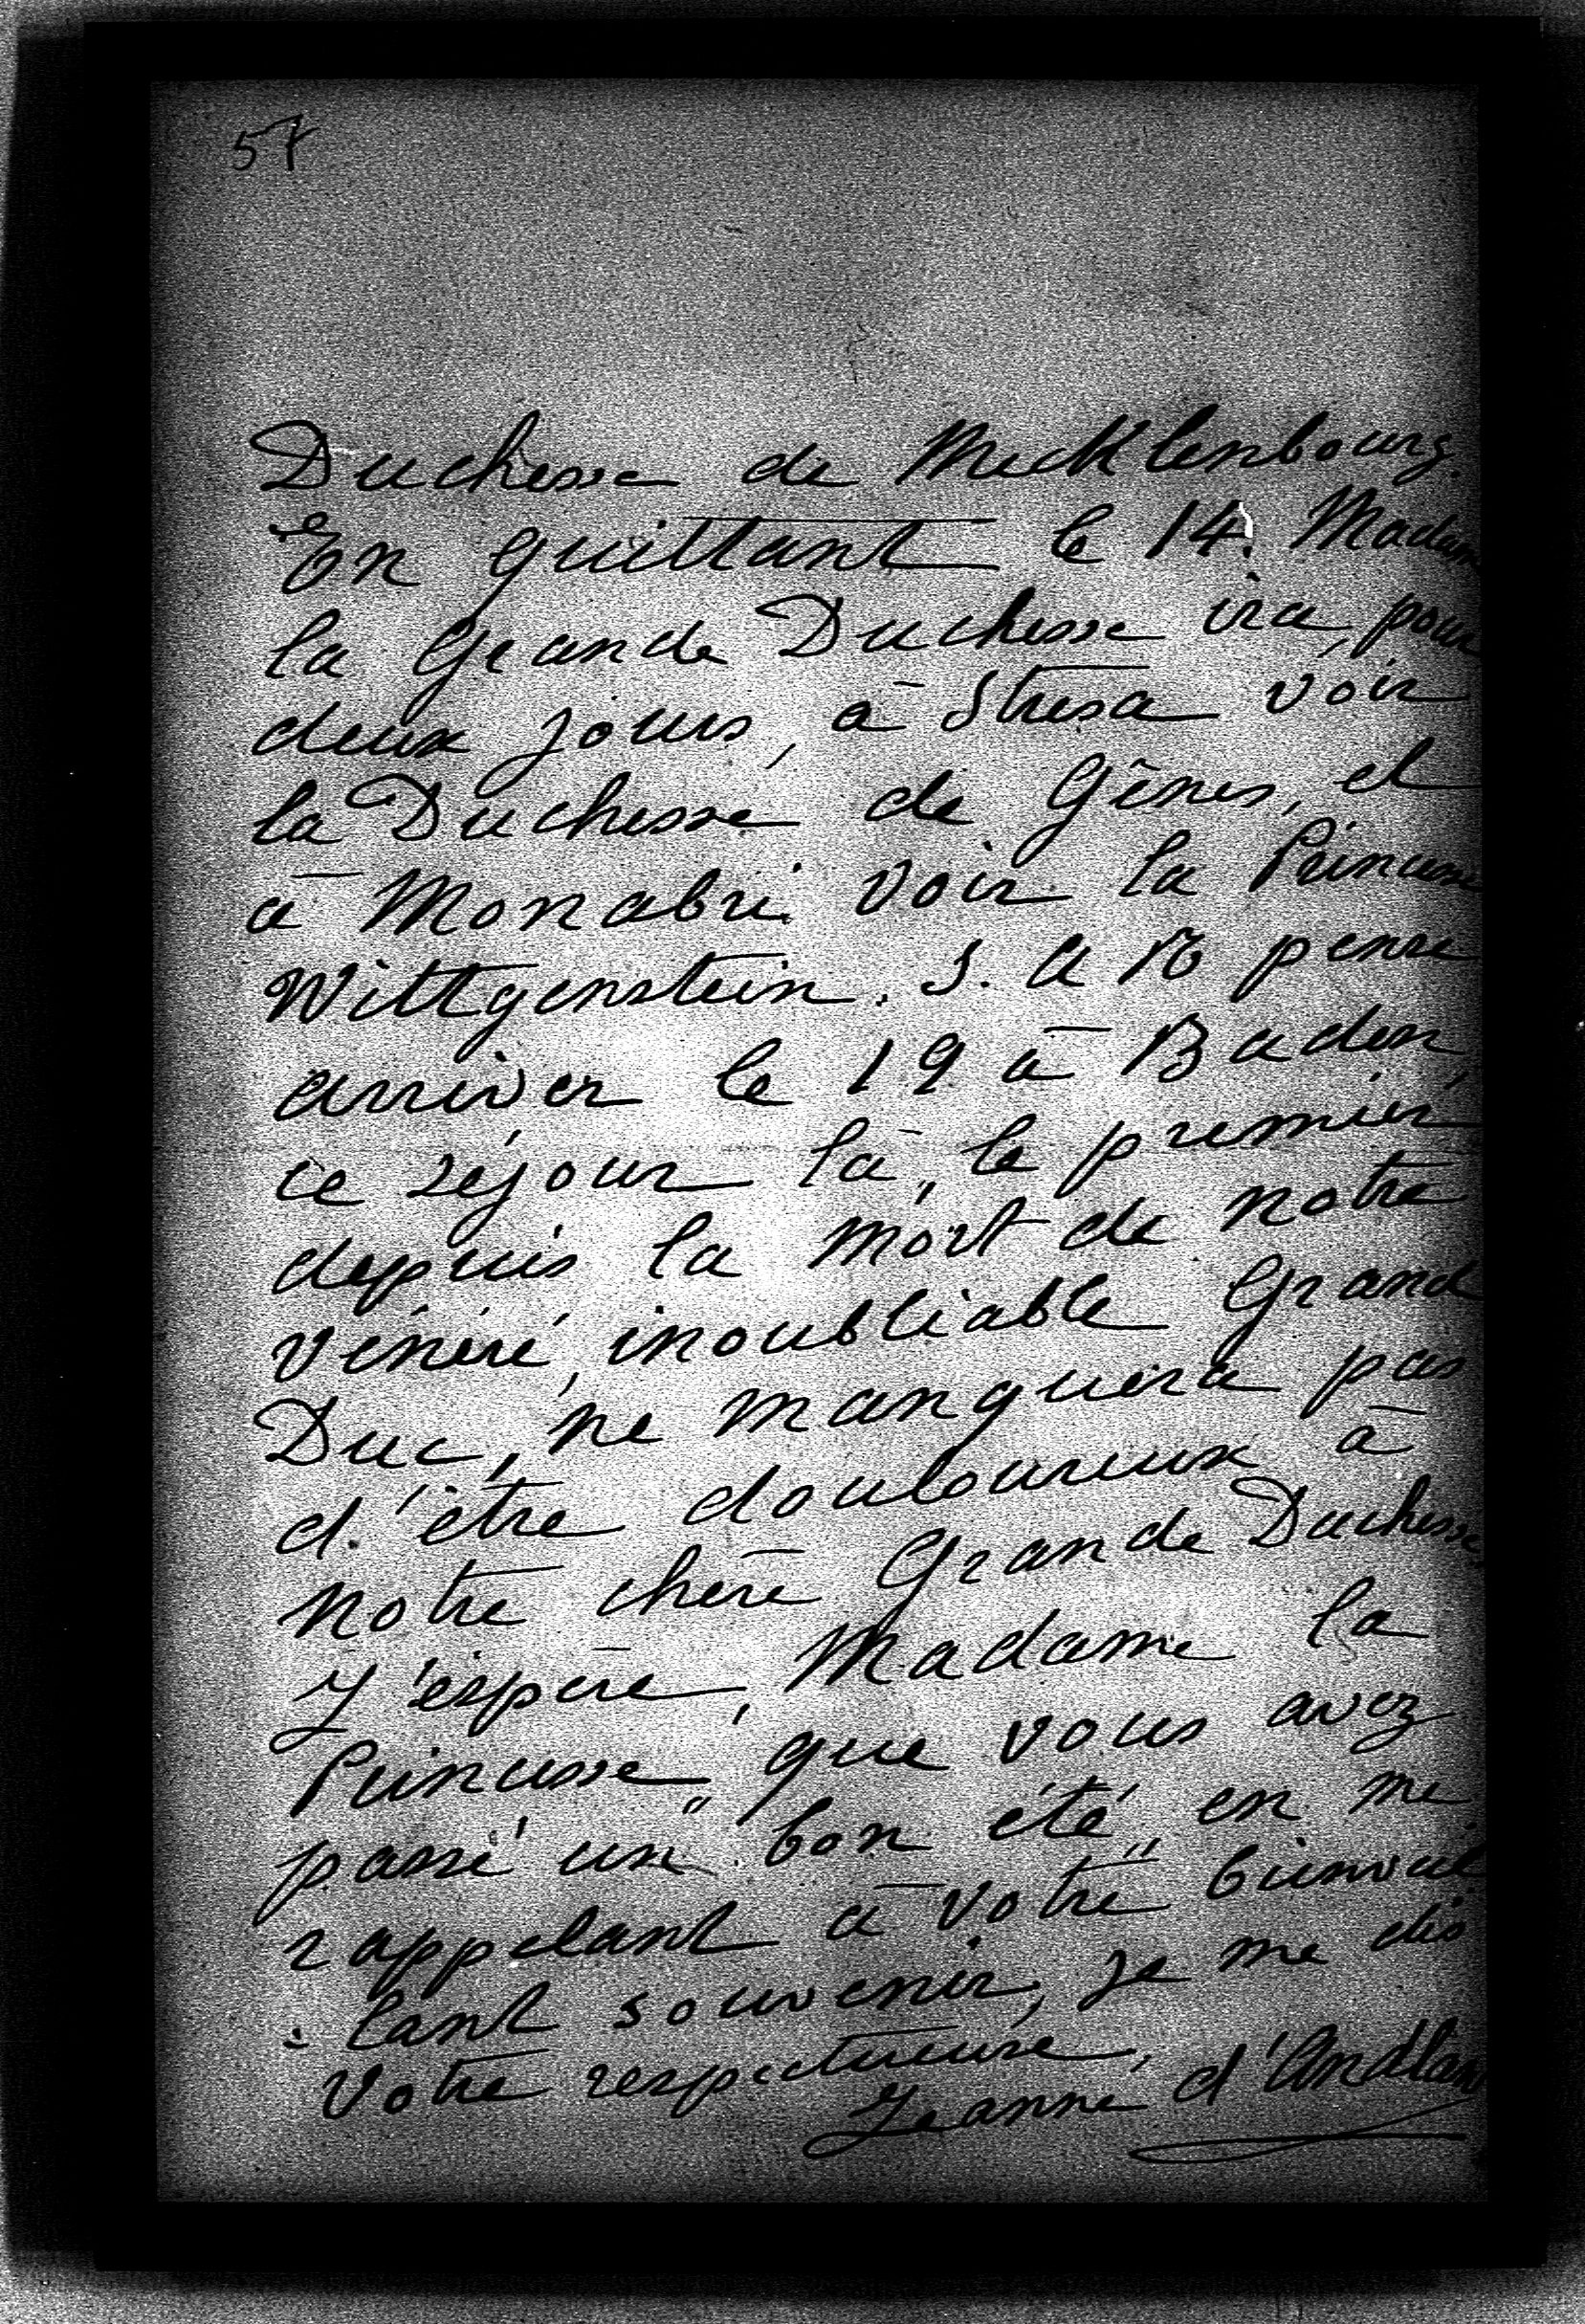 57
Duchesse de Mecklenbourg.
En quittant le 14. Madame
la Grande Duchesse ira, pour
deux jours, à Stresa voir
la Duchesse de Gênes, et
à Monabri voir la Princesse
Wittgenstein. S. A R pense
arriver le 19 à Baden,
ce séjour là, le premier
depuis la mort de notre
vénéré, inoubliable Grand
Duc, ne manquera pas
d'être douloureux à
notre chère Grande Duchesse
J'espère, Madame la
Princesse, que vous avez
passé un bon été, en me
rappelant à votre bienveil
=lant souvenir, je me dis
Votre respectueuse,
Jeanne d'Andlaw